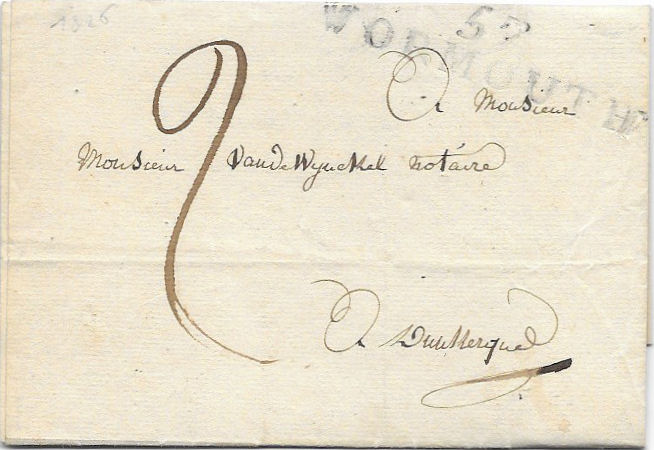 1826
57
WORMOUTH
2
A Monsieur
Monsieur VandeWynckel notaire
A Dunkerque